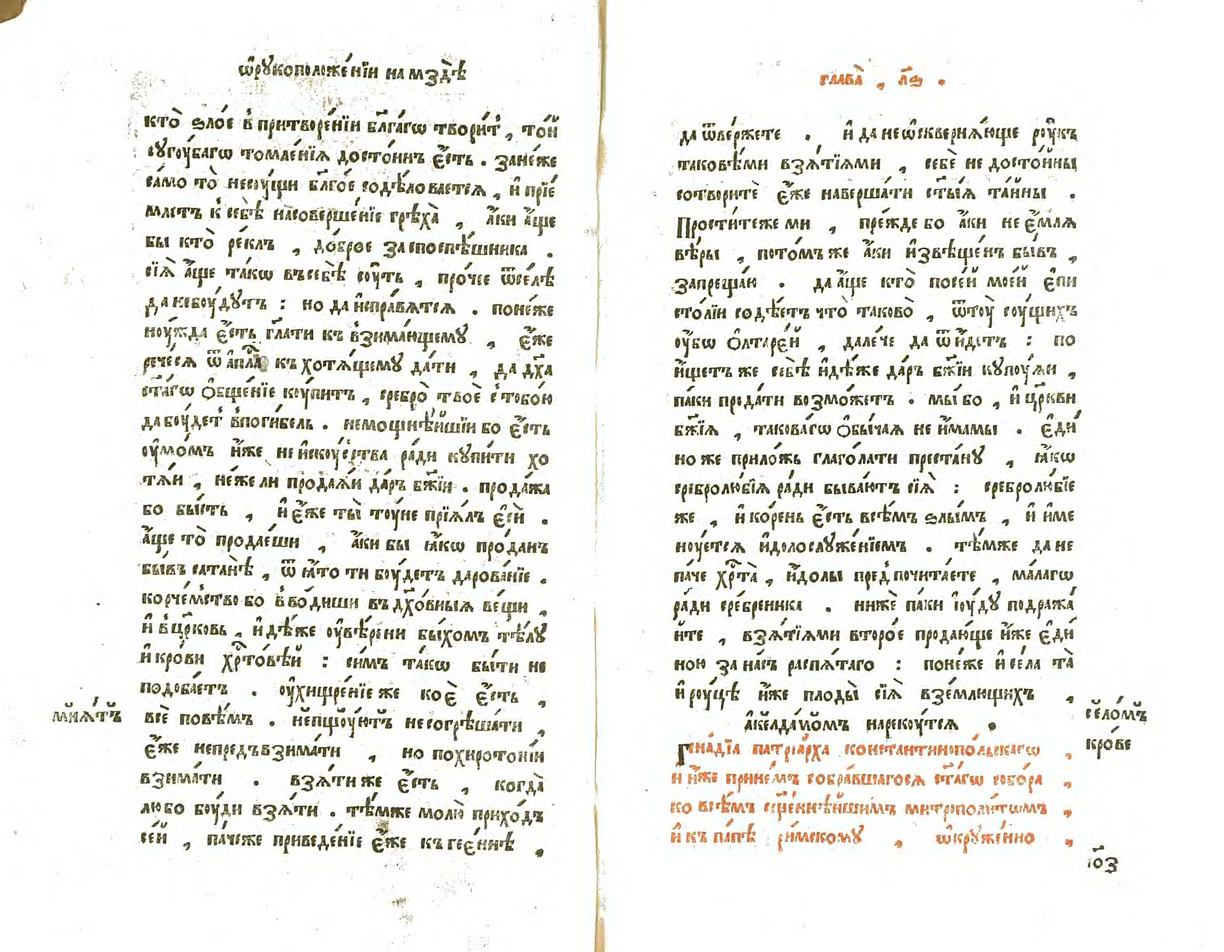 ѡ҆рꙋкоположе́нїи на мздѣ̀
кто̀ ѕло́е в̾притворе́нїи бл҃га́гѡ твори́т̾, то́й
сꙋгоу́багѡ томле́нїѧ досто́инъ є҆́сть. зане́же
само то̀ несоу́щи бл҃го́е содѣ́ловаетсѧ, и҆ прїе́
млетъ к̾ себѣ̀ насоверше́нїе грѣха̀, а҆́ки а҆́ще
бы кто̀ ре́клъ, до́брое заспоспѣ́шника.
сїѧ̀ а҆́ще та́кѡ въсебѣ̀ соу́ть, про́чее ѿсе́лѣ
да небоу́дꙋтъ: но да и҆спра́вѧтсѧ. поне́же
ноу́жда є҆́сть гл҃ати къ взима́ющемꙋ, є҆́же
рече́сѧ ѿ а҆пⷭ҇ла къ хотѧ́щемꙋ да́ти, да дх҃а
ст҃а́гѡ ѻ҆бще́нїе коу́питъ, сребро̀ твоѐ с̾тобо́ю
да боу́дет̾ в̾поги́бель. немощнѣ́йшїи бо є҆́сть
оу҆мо́мъ и҆́же не и҆скоу́ства ра́ди кꙋпи́ти хо
тѧ́и, не́же ли продаѧ́и да́ръ бж҃їи. прода́жа
бо бы́сть, и҆ є҆́же ты̀ тоу́не прїѧ́лъ є҆сѝ.
а҆́ще то̀ продае́ши, а҆́ки бы ꙗ҆́кѡ про́данъ
бы́въ сатанѣ̀, ѿ ꙗ҆́то ти боу́детъ дарова́нїе.
корче́мство бо в̾во́диши въ дх҃о́вныѧ ве́щи,
и҆ в̾ цр҃ковь, и҆дѣ́же оу҆вѣ́рени бы́хомъ тѣ́лꙋ
и҆ кро́ви хрⷭ҇то́вѣй: си́мъ та́кѡ бы́ти не
подоба́етъ. оу҆хищре́нїе же коѐ є҆́сть,
всѐ повѣ́мъ. не́пщꙋютъ несогрѣша́ти,
є҆́же непредъвзима́ти, но похиротонїи
взима́ти. взѧ́ти же є҆́сть, когда̀
лю́бо боу́ди взѧ́ти. тѣ́мже молю̀ прихо́дъ
се́й, па́че же приведе́нїе є҆́же къ гее́ннѣ,
мнѧ́тъ
глава̀, л҃ѕ.
да ѿве́ржете. и҆ да не ѡ҆скверня́юще роу́къ
таковѣ́ми взѧ́тїѧми, себѐ не досто́йны
сотвори́те є҆́же наверша́ти ст҃ы́ѧ та́йны.
Прости́теже ми, пре́жде бо а҆́ки не є҆́млѧ
вѣ́ры, пото́мъ же а҆́ки и҆звѣще́нъ бы́въ,
запреща́ю. да а҆́ще кто̀ посе́й мое́й є҆пи
сто́лїи содѣ́етъ что̀ таково̀, ѿтоу́ соу́щихъ
оу҆́бѡ ѻ҆лтаре́й, дале́че да ѿи́детъ: по
и҆́щетъ же себѣ̀ и҆дѣ́же да́ръ бж҃їи кꙋпоуѧ́и,
па́ки прода́ти возмо́жетъ. мы́ бо, и҆ цр҃кви
бж҃їѧ, такова́гѡ ѻ҆бы́чаѧ не и҆́мамы. є҆ди́
но же прило́жь глаго́лати преста́нꙋ, ꙗ҆́кѡ
сребролю́бїѧ ра́ди быва́ютъ сїѧ̀: сребролю́бїе
же, и҆ ко́рень є҆́сть всѣ́мъ ѕлы́мъ, и҆ и҆ме
ноу́етсѧ и҆долослꙋже́нїемъ. тѣ́мже да не
па́че хрⷭ҇та̀, и҆́долы пред̾почита́ете, ма́лагѡ
ра́ди сре́бреника. ни́же па́ки і҆оу́дꙋ подража́
йте, взѧ́тїѧми второ́е продаю́ще и҆́же є҆ди́
ною за на́съ распѧ́таго: поне́же и҆ се́ла та̀
и҆ роу́цѣ и҆́же плоды̀ сїѧ̀ взе́млющихъ,
а҆келдамо́мъ нареку́тсѧ.
се́ломъ
кро́ве
Гена́дїа патрїа́рха константинопо́льскагѡ,
и и҆́же при не́мъ собра́вшагосѧ ст҃а́гѡ собо́ра,
ко всѣ́мъ сщ҃е́ннѣйшимъ митрополи́тѡмъ,
и҆ къ па́пѣ ри́мскомꙋ, ѡ҆крꙋ́женно,
і҆о҃з